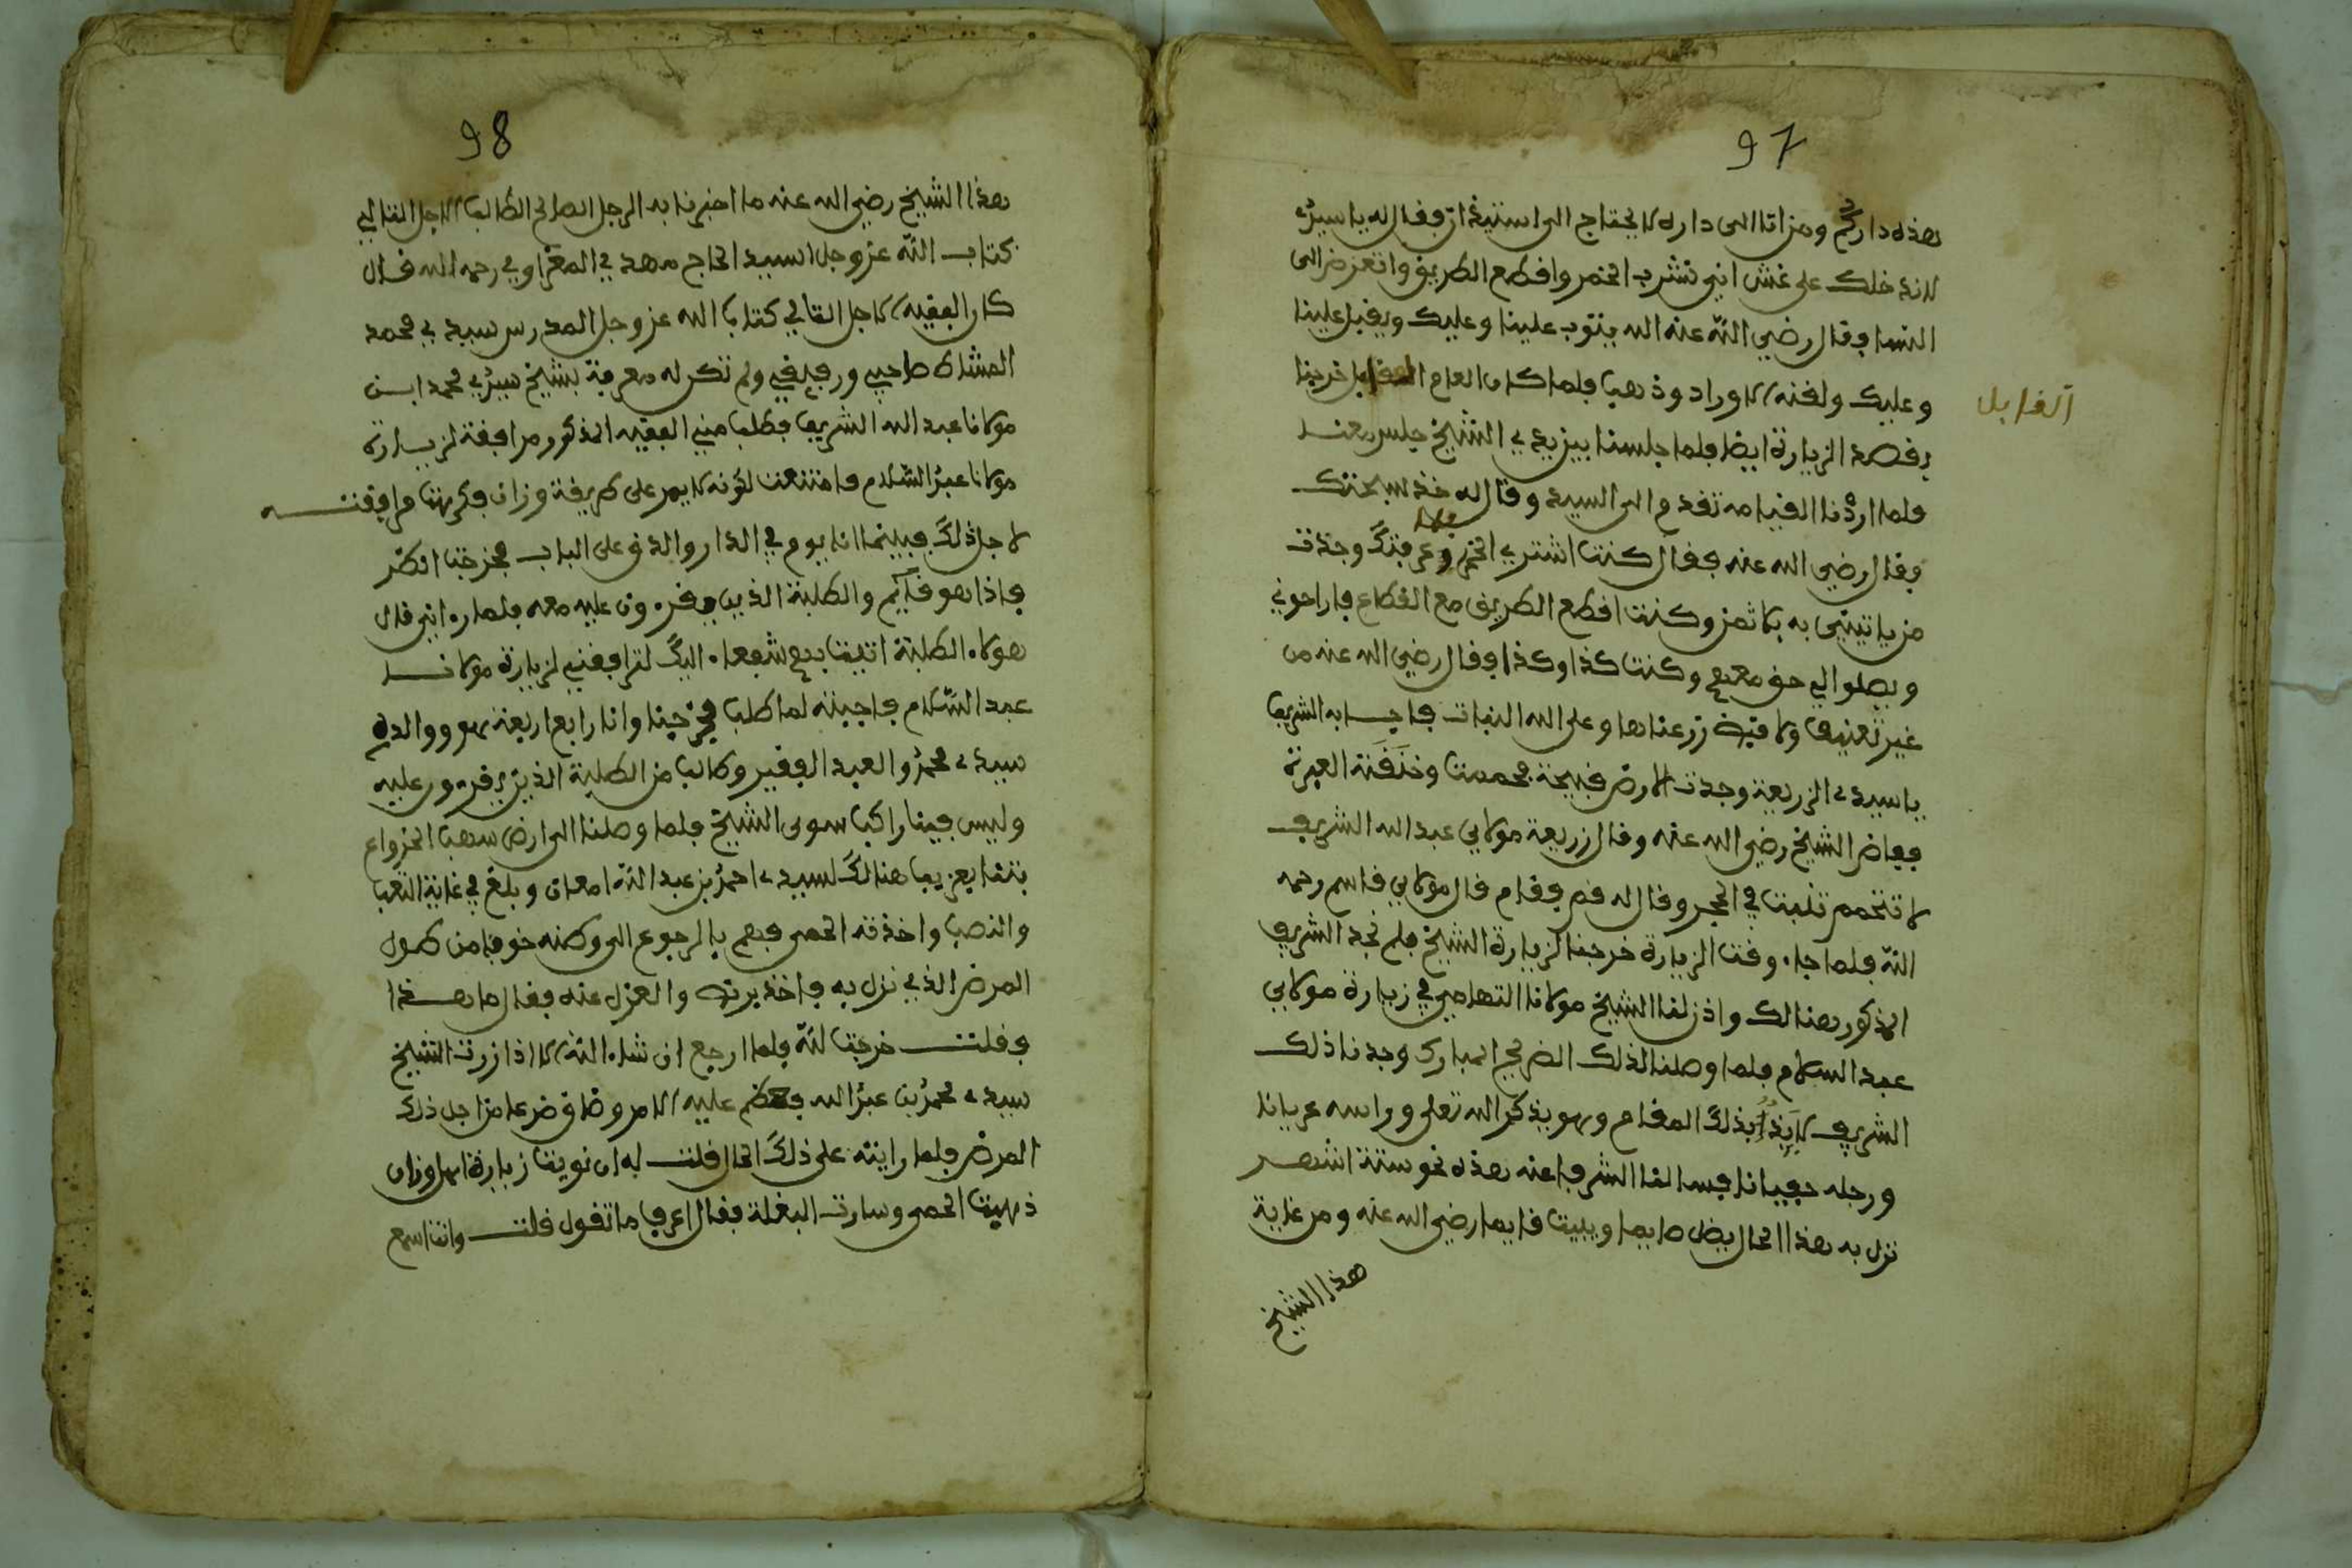 97
هذه داركم ومن اتا الى دارك لا يحتاج الى استيذان فقال له يا سيدي
لا ندخلك على غش اني نشرب الخمر واقطع الطريق واتعرض الى
النسا فقال رضي الله عنه الله يتوب علينا وعليك ويقبل علينا
وعليك ولقنه الاوراد وذهب فلما كان العام القابل خرجنا
القابل
بقصد الزيارة ايضا فلما جلسنا بين يدي الشيخ جلس معنا
فلما اردنا القيام تقدم الى السيد وقال له خذ سبحتك
فقال رضي الله عنه فقال كنت اشتري الخمر وعرفتك وجدت
من ياتيني به بلا ثمن وكنت اقطع الطريق مع القطاع فاراحوني
ويصلوا الي حق معهم وكنت كذا وكذا فقال رضي الله عنه من
غير تعنيف ولا زرعناها وعلى الله النبات فاجابه الشريف
يا سيدي الزريعة وجدت الارض قبيحة محممت وخنقته العبرة
ففاض الشيخ رضي الله عنه وقال زريعة مولاي عبد الله الشريف
لا تتحمم تنبت في الحجر وقال له قم فقام قال مولاي قاسم رحمه
الله فلما جاء وقت الزيارة خرجنا لزيارة الشيخ فلم نجد الشريف
المذكور هنالك واذن لنا الشيخ مولانا التهامي في زيارة مولاي
عبد السلام فلما وصلنا لذلك الضريح المبارك وجدنا ذلك
الشريف لايذا بذلك المقام وهو يذكر الله تعلى وراسه عريانا
ورجله حفيانا فسالنا الشرفا عنه هذه نحو ستة اشهر
نزل به هذا الحال يظل صايما ويبيت قايما رضي الله عنه ومن عناية
هذا الشيخ
98
هذا الشيخ رضي الله عنه ما اخبرنا به الرجل الصالح الطالب الاجل التالي
كتاب الله عز وجل السيد الحاج مهدي المغراوي رحمه الله قال
كان الفقيه الاجل التالي كتاب الله عز وجل المدرس سيدي محمد
المشاط صاحبي ورفيقي ولم تكن له معرفة بشيخ سيدي محمد ابن
مولانا عبد الله الشريف فطلب مني الفقيه المذكور مرافقة لزيارة
مولانا عبد السلام فامتنعت لكونه لا يمر على طريقة وزان فكرهت مرافقته
لاجل ذلك فبينما انا يوم في الدار والدق على الباب فخرجت انظر
فاذا هو قايم والطلبة الذين يقرءون عليه معه فلما رءاني قال
هولاء الطلبة اتيت بهم شفعاء اليك لترافقني لزيارة مولانا
عبد السلام فاجبته لما طلب فخرجنا وانا رابع اربعة هو ووالده
سيدي محمد والعبد الفقير وطالب من الطلبة الذين يقرءون عليه
وليس فينا راكب سوى الشيخ فلما وصلنا الى ارض سهب الخرواع
بتنا بعزيب هنالك لسيدي احمد بن عبد الله امعان وبلغ في غاية التعب
والنصب واخذته الحمى فهم بالرجوع الى وطنه خوفا من طول
المرض الذي نزل به فاخذ يرتد والعرق عنه فقال ما هذا
فقلت خرجت لله فلما ارجع ان شاء الله الا اذا زرت الشيخ
سيدي محمد بن عبد الله فعظم عليه الامر وضاق ضرعا من اجل ذلك
المرض فلما رايته على ذلك الحال قلت له ان نويت زيارة اهل وزان
ذهبت الحمى وسارت البغلة فقال اعرف ما تقول قلت وانت اسمع